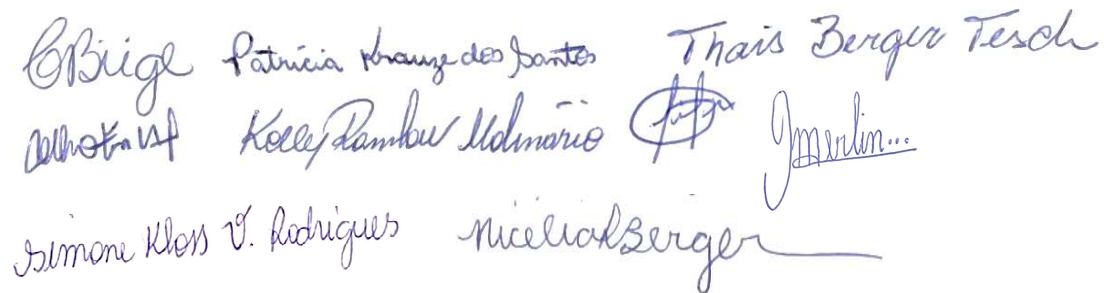 Patrícia Krauze dos Santos Thais Berger Tesch
Kelly Ramlow Molinário Jmerlin...
Simone Kloss V. Rodrigues Nicélia R Berger